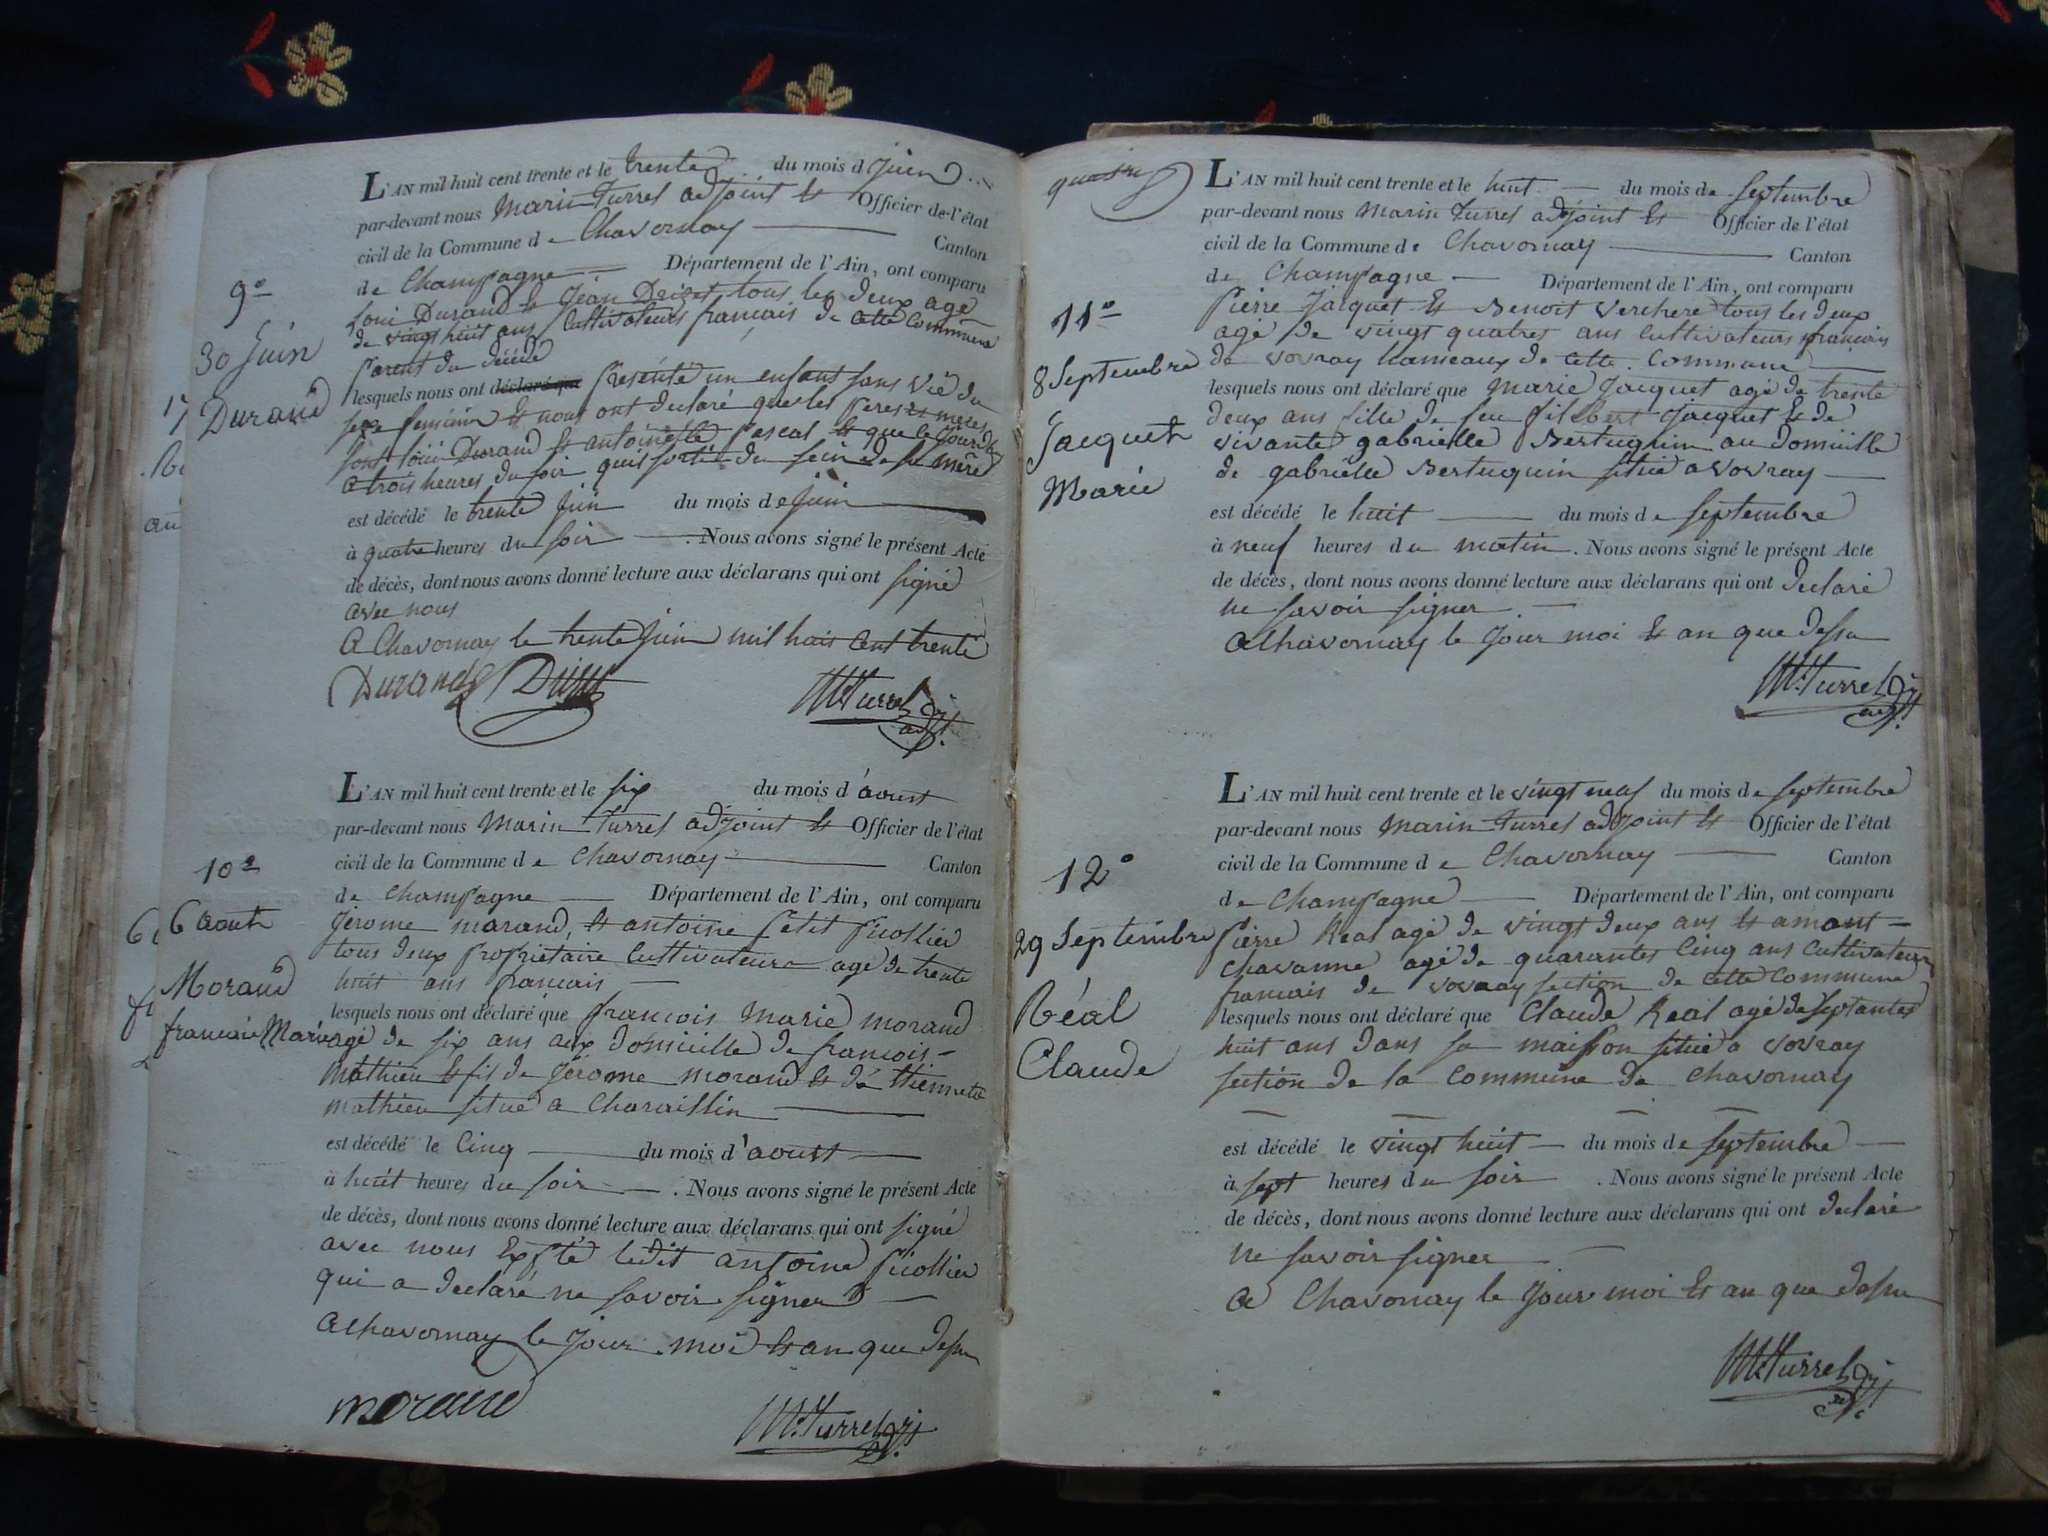 L'AN mil huit cent trente et le trente du mois d Juin
par-devant nous Marin Turrel adjoint et Officier de l'état
civil de la Commune d e Chavornay Canton
de Champagne Département de l'Ain, ont comparu
Loui Durand et Jean tous les deux agé
de vingt huit ans Cultivateurs français de cette Commune
Parent du décédé
lesquels nous ont déclaré que Presénté un enfant sans vië du
sexe feminin et nous ont declaré que les Peres et meres
sont loüi Durand et antoinette Pascal et que le
a trois heures du soir quil sortie du sein de sa mère
est décédé le trente Juin du mois de Juin
à quatre heures du soir . Nous avons signé le présent Acte
de décès, dont nous avons donné lecture aux déclarans qui ont signé
avec nous
A Chavornay le trente Juin mil huit Cent trente
Durand
M. Turrel adj.
9º
30 Juin
Durand
L'AN mil huit cent trente et le six du mois d'aoust
par-devant nous Marin Turrel adjoint et Officier de l'état
civil de la Commune d e Chavornay Canton
de Champagne Département de l'Ain, ont comparu
Jérome morand, et antoine Petit Picollier
tous deux Propriétaire Cultivateurs agé de trente
huit ans français
lesquels nous ont déclaré que françois Marie morand
agé de six ans aux domicille de françois-
Mathieu et fils de Jérome morand et dé
mathieu situé a Charaillin
est décédé le Cinq du mois d'aoust
à huit heures du soir . Nous avons signé le présent Acte
de décès, dont nous avons donné lecture aux déclarans qui ont signé
avec nous ledit antoine Picollier
qui a declaré ne savoir signer
A Chavornay le Jour moi et an que dessu
morand
M. Turrel adj.
10º
6 aout
Morand
francois Marie
quatre
L'AN mil huit cent trente et le huit du mois de Septembre
par-devant nous Marin Turrel adjoint et Officier de l'état
civil de la Commune d e Chavornay Canton
de Champagne Département de l'Ain, ont comparu
Pierre Jacquet et Benoit Verchere tous les deux
agé de vingt quatres ans Cultivateurs français
de vovray hameaux de cette Commune
lesquels nous ont déclaré que Marie Jacquet agé de trente
deux ans fille de feu filibert Jacquet et de
vivante gabrielle Bertuquin au domicille
de gabrielle Bertuquin situé a vovray
est décédé le huit du mois de septembre
à neuf heures du matin . Nous avons signé le présent Acte
de décès, dont nous avons donné lecture aux déclarans qui ont declaré
ne savoir signer
A Chavornay le Jour moi et an que dessu
M. Turrel adj.
11º
8 Septembre
Jacquet
Marie
L'AN mil huit cent trente et le vingt neuf du mois de septembre
par-devant nous Marin Turrel adjoint et Officier de l'état
civil de la Commune d e Chavornay Canton
de Champagne Département de l'Ain, ont comparu
Pierre Real agé de vingt deux ans et amant
Chavanne agé de quarantes Cinq ans Cultivateurs
francais de vovray section de cette Commune
lesquels nous ont déclaré que Claude Real agé de septantes
huit ans dans sa maison situé a vovray
section de la Commune de Chavornay
est décédé le vingt huit du mois de septembre
à sept heures du soir . Nous avons signé le présent Acte
de décès, dont nous avons donné lecture aux déclarans qui ont declaré
ne savoir signer
A Chavornay le Jour moi et an que dessu
M. Turrel adj.
12º
29 Septembre
Réal
Claude